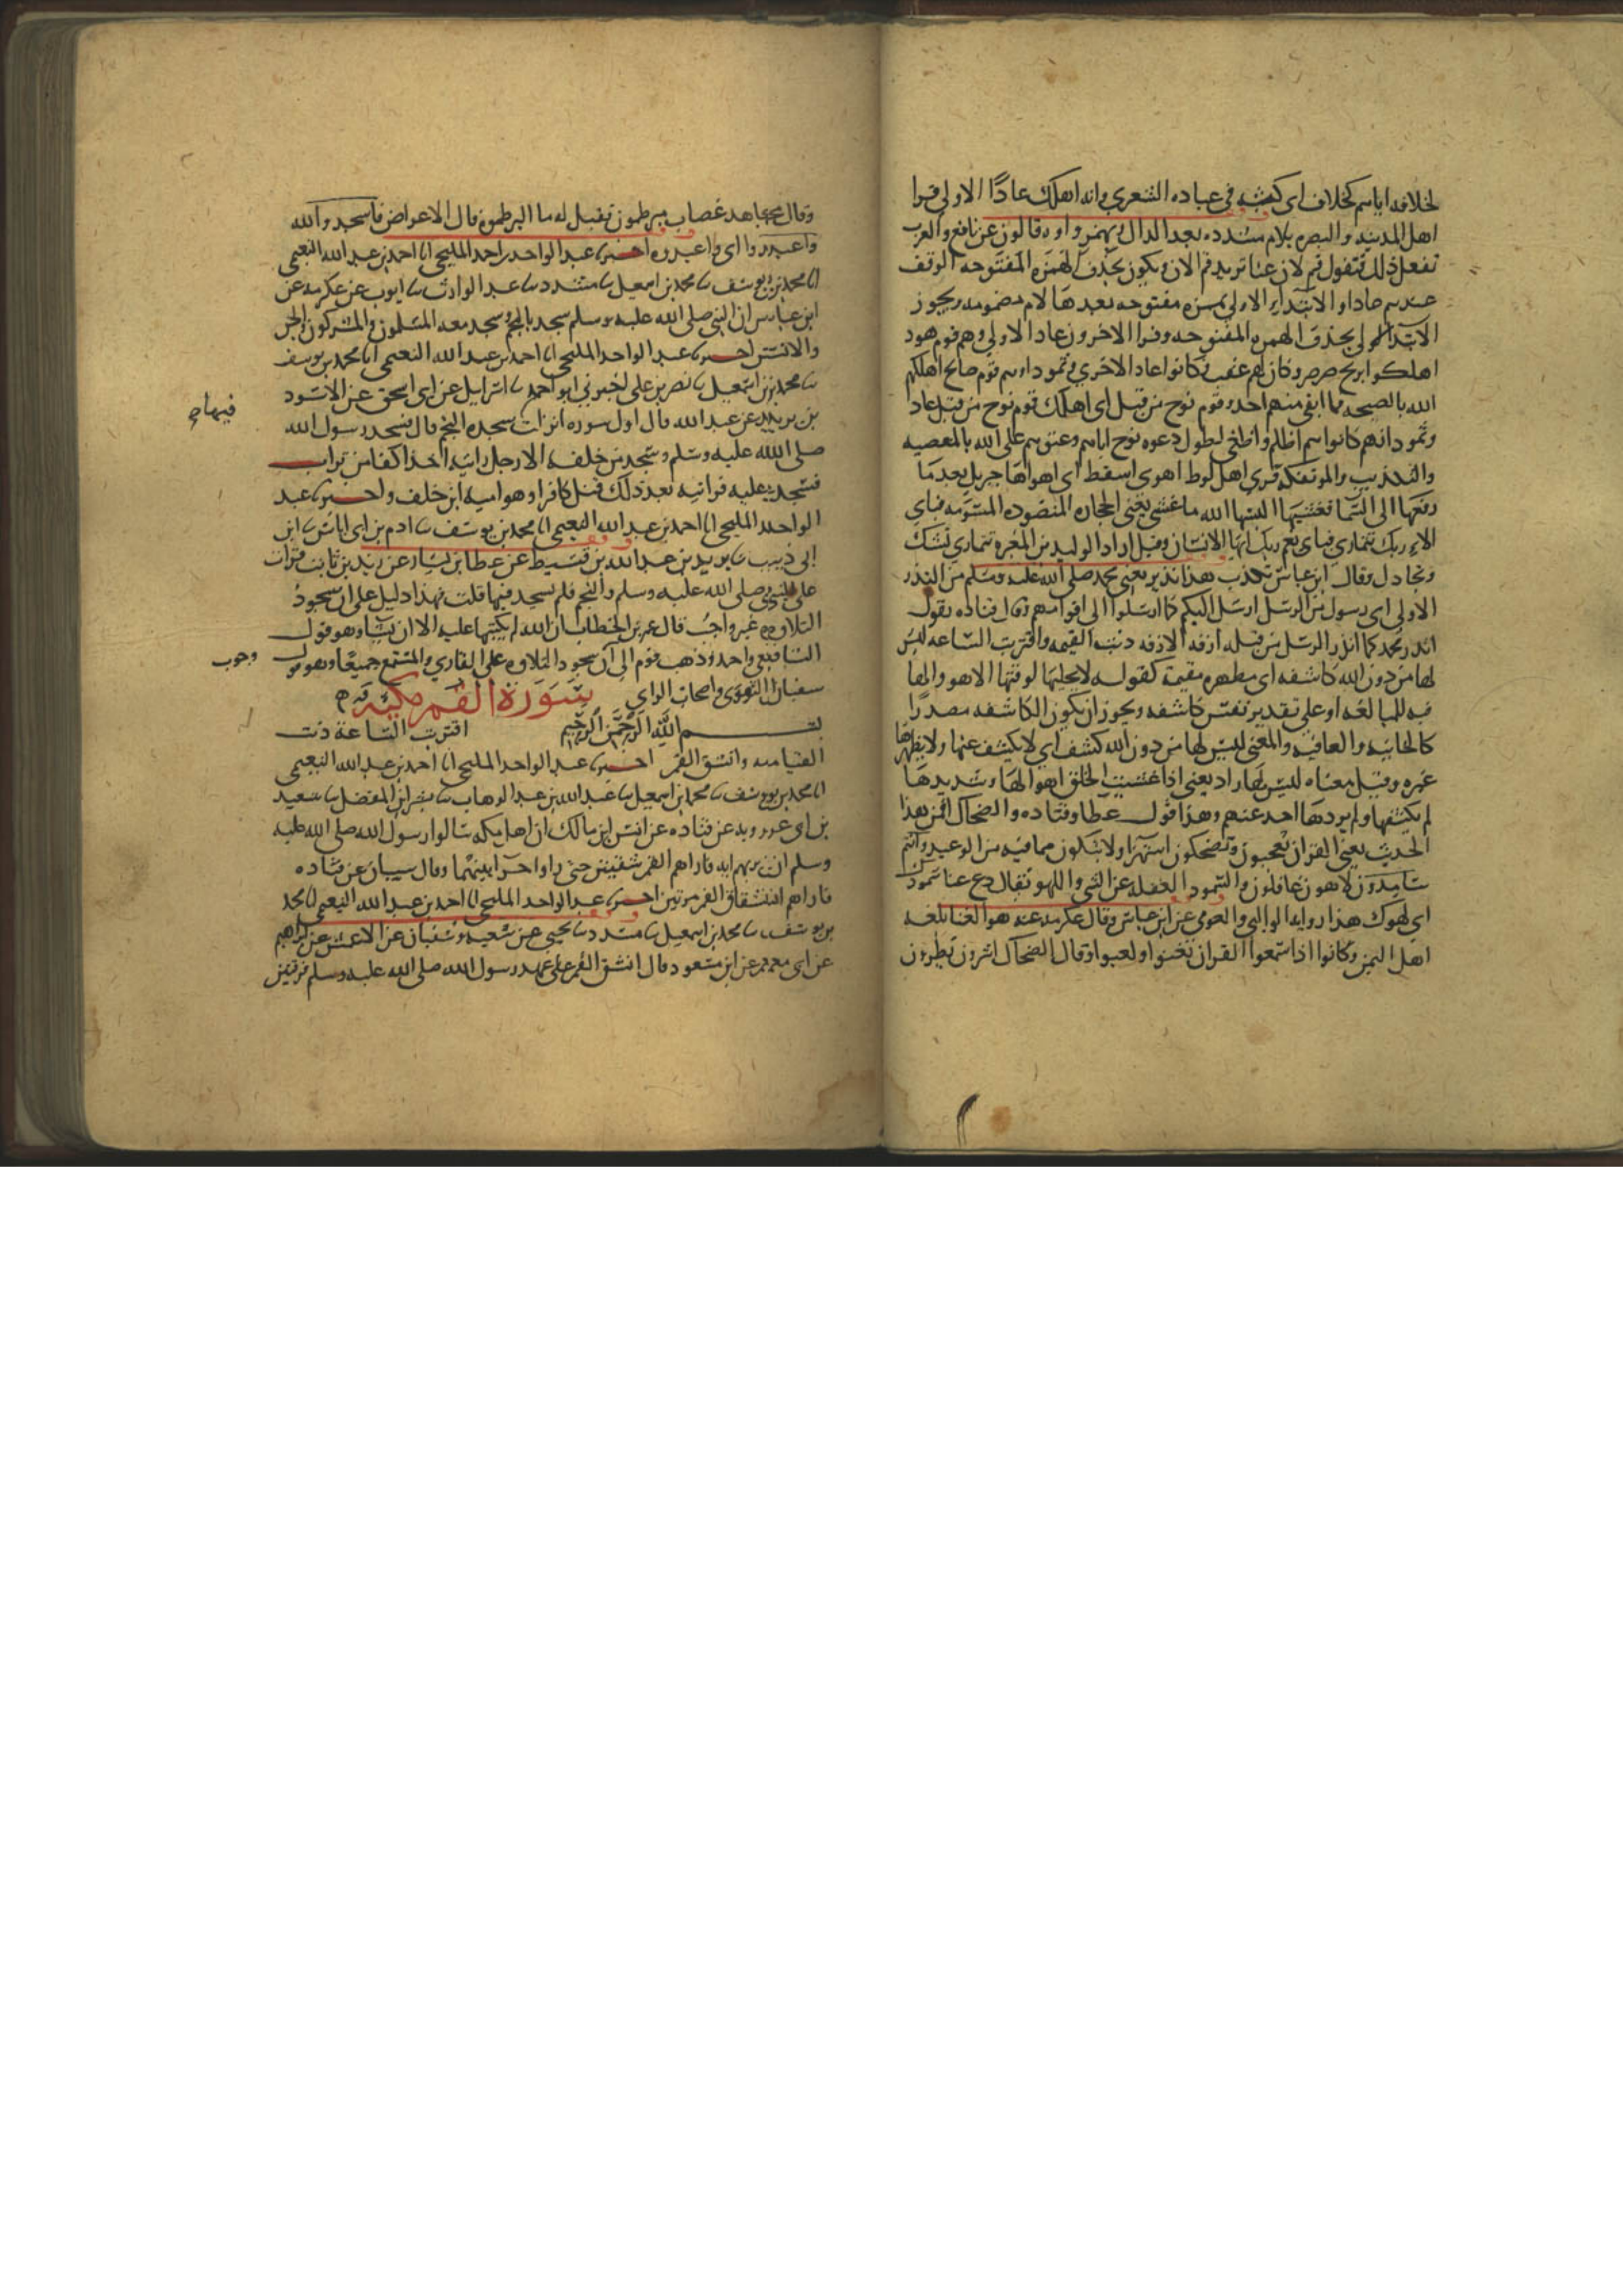 لخلافه اياهم كخلاف ابي كبشه في عباده الشعري وانه اهلك عادًا الاولى قرا
اهل المدينه والبصره بلام مشدده بعد الدال ويهمز واوه قالون عن نافع والعرب
تفعل ذلك فتقول قم لان عنا تريد قم الان ويكون بحذف الهمزه المفتوحه الوقف
عندهم عادا و الابتداء الاولى بهمزه مفتوحه بعدها لام مضمومه ويجوز
الابتدا لولى بحذف الهمزه المفتوحه وقرا الاخرون عادا الاولى وهم قوم هود
اهلكوا بريح صرصر وكان لهم عقب وكانوا عادا الاخرى وثمودا وهم قوم صالح اهلكهم
الله بالصيحه فما ابقى منهم احد وقوم نوح من قبل اي اهلك قوم نوح من قبل عاد
وثمود انهم كانوا هم اظلم واطغى لطول دعوه نوح اياهم وعتوهم على الله بالمعصيه
والتكذيب والموتفكه قرى اهل لوط اهوى اسقط اي اهواها جبريل بعد ما
رفعها الى السما فغشيها البسها الله ما غشى يعني الحجاره المنضوده المسومه فباي
الاء ربك تتمارى فباي نعم ربك ايها الانسان وقيل اراد الوليد بن المغيره تتمارى تشك
وتجادل وقال ابن عباس تكذب هذا نذير يعني محمد صلى الله عليه وسلم من النذر
الاولى اي رسول من الرسل ارسل اليكم كما ارسلوا الى اقوامهم وقال قتاده يقول
انذر محمد كما انذر الرسل من قبله ازفه الازفه دنت القيمه واقتربت الساعه ليس
لها من دون الله كاشفه اي مظهره مقيمة كقوله لا يجليها لوقتها الا هو والها
فيه للمبالغه او على تقدير نفس كاشفه ويجوز ان يكون الكاشفه مصدرًا
كالخائنه والعافيه والمعنى ليس لها من دون الله كشف اي لا يكشف عنها ولا يظهرها
غيره وقيل معناه ليس لها راد يعني اذا غشيت الخلق اهوالها وشديدها
لم يكشفها ولم يردها احد عنهم وهذا قول عطا وقتاده والضحاك افمن هذا
الحديث يعني القران تعجبون وتضحكون استهزا ولا تبكون مما فيه من الوعيد وانتم
سامدون لاهون غافلون والسمود الغفله عن الشي واللهو يقال دع عنا سمودك
اي لهوك هذا روايه الوالبي والعوفي عن ابن عباس وقال عكرمه عنه هو الغنا بلغه
اهل اليمن وكانوا اذا سمعوا القران تغنوا ولعبوا وقال الضحاك اشرون بطرون
وقال مجاهد غضاب مبرطمون فقيل له ما البرطمه قال الاعراض فاسجدوا لله
واعبدوا اي واعبدوه اخبرنا عبد الواحد بن احمد المليحي انا احمد بن عبد الله النعيمي
انا محمد بن يوسف نا محمد بن اسمعيل نا مسدد نا عبد الوارث نا ايوب عن عكرمه عن
ابن عباس ان النبي صلى الله عليه وسلم سجد بالنجم وسجد معه المسلمون والمشركون والجن
والانس اخبرنا عبد الواحد المليحي انا احمد بن عبد الله النعيمي انا محمد بن يوسف
نا محمد بن اسمعيل نا نصر بن علي اخبرني ابو احمد نا اسرائيل عن ابي اسحق عن الاسود
بن يزيد عن عبد الله قال اول سوره انزلت سجده النجم قال فسجد رسول الله
فيها
صلى الله عليه وسلم وسجد من خلفه الا رجل رايته اخذ كفا من تراب
فسجد عليه فرايته بعد ذلك قتل كافرا وهو اميه ابن خلف واخبرنا عبد
الواحد المليحي انا احمد بن عبد الله النعيمي انا محمد بن يوسف نا ادم بن ابي اياس نا ابن
ابي ذيب نا يزيد بن عبد الله بن قسيط عن عطا بن يسار عن زيد بن ثابت قرات
على النبي صلى الله عليه وسلم والنجم فلم يسجد فيها قلت فهذا دليل على ان سجود
التلاوه غير واجب قال عمر بن الخطاب ان الله لم يكتبها عليه الا ان يشا وهو قول
الشافعي واحد وذهب قوم الى ان سجود التلاوه على القاري والمستمع جميعًا وهو قول
وجوب
سفيان الثوري واصحاب الراي سورة القمر مكية
بسم الله الرحمن الرحيم اقتربت الساعة دنت
القيامه وانشق القمر اخبرنا عبد الواحد المليحي انا احمد بن عبد الله النعيمي
انا محمد بن يوسف نا محمد بن اسمعيل نا عبد الله بن عبد الوهاب نا بشر ابن المفضل نا سعيد
بن ابي عروبه عن قتاده عن انس ابن مالك ان اهل مكه سالوا رسول الله صلى الله عليه
وسلم ان يريهم ايه فاراهم القمر شقتين حتى راوا حرا بينهما وقال سيبان عن قتاده
فاراهم انشقاق القمر مرتين اخبرنا عبد الواحد المليحي انا احمد بن عبد الله النعيمي انا محمد
بن يوسف نا محمد بن اسمعيل نا مسدد نا يحيى عن شعبه وسفيان عن الاعمش عن ابراهيم
عن ابي معمر عن ابن مسعود قال انشق القمر على عهد رسول الله صلى الله عليه وسلم فرقتين